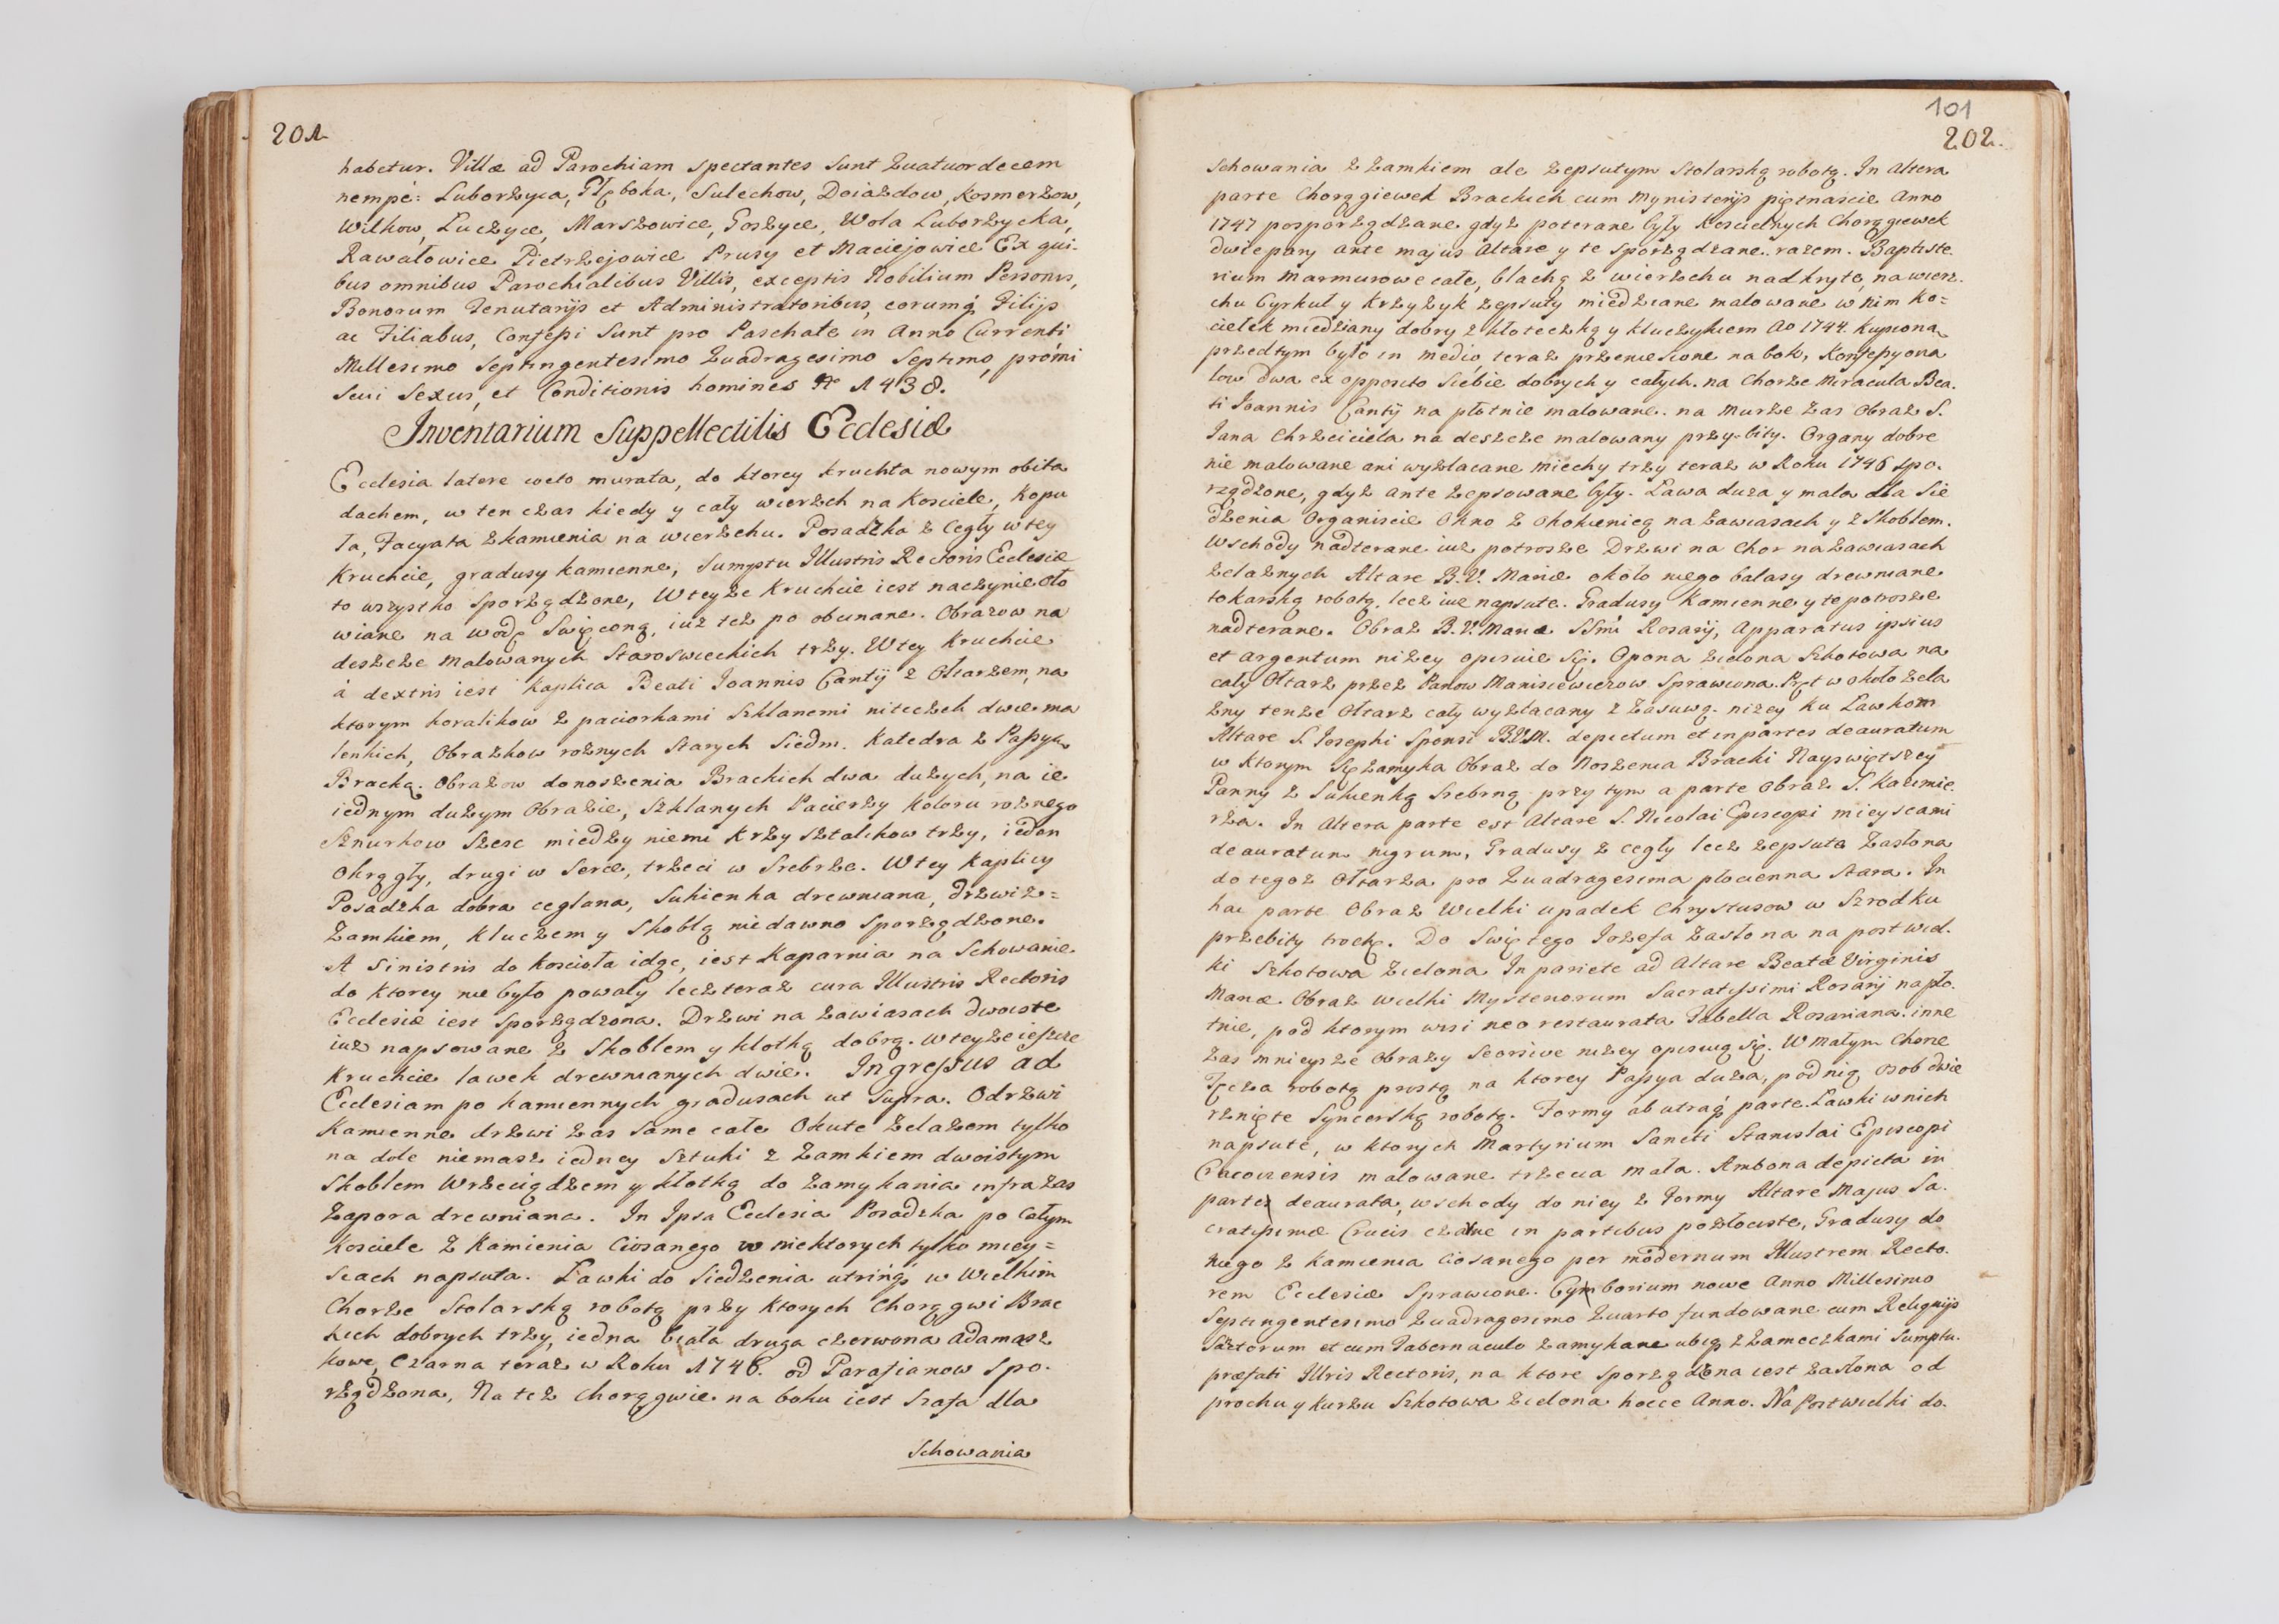 201
habetur. Villæ ad Parochiam spectantes sunt Quatuordecem
nempè: Luborzyca, Głęboka, Sulechow, Doiazdow, Kosmerzow,
Wilkow, Luczyce, Marszowice, Goszyce, Wola Luborzycka,
Rawałowice Pietrzejowice Prusy et Maciejowice Ex qui-
bus omnibus Parochialibus Villis, exceptis Nobilium Personis,
Bonorum Tenutarijs et Administratoribus, eorumq Filijs
ac Filiabus, Confeßi sunt pro Paschate in Anno Currenti
Millesimo Septingentesimo Quadragesimo Septimo, promi
scui Sexus, et Conditionis homines Nr 1438.
Inventarium Suppellectilis Ecclesiæ
Ecclesia latere cocto murata, do ktorey kruchta nowym obita
dachem, w ten czas kiedy y cały wierzch na Kosciele, Kopu
ła, Facyata z kamienia na wierzchu. Posadzka z Cegły w tey
Kruchcie, gradusy kamienne, Sumptu Illustris Rectoris Ecclesiæ
to wszystko sporządzone, W teyze Kruchcie iest naczynie oło
wiane na wodę Swięconą, iuz tez po obcinane. Obrazow na
deszcze malowanych Staroswieckich trzy. W tey Kruchcie
à dextris iest Kaplica Beati Joannis Cantij z Ołtarzem, na
ktorym koralikow z paciorkami Szklanemi niteczek dwie ma
lenkich, Obrazkow roznych Starych Siedm. Katedra z Paßyą
Bracką. Obrazow do noszenia Brackich dwa duzych, na ie
iednym duzym Obrazie, Szklanych Pacierzy koloru roznego
Sznurkow Szesc miedzy niemi Krzysztalikow trzy, ieden
Okrągły, drugi w Serce, trzeci w Srebrze. W tey Kaplicy
Posadzka dobra ceglana, Sukienka drewniana, drzwi z=
Zamkiem, Kluczem y Skoblą niedawno Sporządzone.
A Sinistris do kosciola idąc, iest Kaparnia na Schowanie
do Ktorey nie było powały lecz teraz cura Illustris Rectoris
Ecclesiæ iest Sporządzona. Drzwi na zawiasach dwoiste
iuz napsowane z Skoblem y klotką dobrą. W teyze ieszcze
Kruchcie lawek drewnianych dwie. Ingreßus ad
Ecclesiam po kamiennych gradusach ut Supra. Odrzwi
Kamienne drzwi zas same całe Okute Zelazem tylko
na dole niemasz iedney Sztuki z Zamkiem dwoistym
Skoblem Wrzeciądzem y kłotką do zamykania infra zas
Zapora drewniana. In Ipsa Ecclesia Posadzka po całym
Kosciele z Kamienia Ciosanego w niektorych tylko miey=
scach napsuta. Lawki do Siedzenia utrinq w Wielkim
Chorze Stolarską robotą przy Ktorych Chorągwi Brac
kich dobrych trzy, iedna biała druga czerwona adamasz
kowe, Czarna teraz w Roku 1746. od Parafianow spo-
rządzona, Na tez Chorągwie na boku iest Szafa dla
Schowania
101
202.
Schowania z zamkiem ale zepsutym Stolarską robotą. In Altera
parte Chorągiewek Brackich cum Mynisterijs piętnascie Anno
1747 posporządzane gdyz poterane były Koscielnych Chorągiewek
dwie pary ante majus Altare y te sporządzane razem. Baptiste-
rium Marmurowe całe, blachą z wierzchu nadkryte, na wierz-
chu Cyrkuł y Krzyzyk zepsuty miedziane malowane w nim Ko=
ciełek miedziany dobry z kłoteczką y kluczykiem Ao 1744. Kupiona
przedtym było in medio, teraz przeniesione na bok, Konfeßyona
low dwa ex opposito siebie dobrych y całych. na Chorze Miracula Bea-
ti Joannis Cantij na płotnie malowane. na Murze zas Obraz S.
Jana Chrzciciela na deszcze malowany przy-bity. Organy dobre
nie malowane ani wyzlacane Miechy trzy teraz w Roku 1746 spo-
rządzone, gdyz ante zepsowane były. Lawa duza y mala dla Sie
dzenia Organiscie Okno z Okokienicą na zawiasach y z Skoblem.
Wschody nadterane iuz potrosze Drzwi na Chor na zawiasach
zelaznych Altare B.V. Mariæ około niego balasy drewniane
tokarską robotą, lecz iuz napsute. Gradusy Kamienne y te potrosze
nadterane. Obraz B.V. Mariæ SSmi Rosarij, Apparatus ipsius
et argentum nizey opisuie Się. Opona zielona Szkotowa na
cały Ołtarz przez Panow Manisiewiczow Sprawiona. Pręt w około zela
zny tenze Ołtarz cały wyzlacany z Zasuwą. nizey ku Lawkom
Altare S. Josephi Sponsi B.V.M. depictum et in partes deauratum
w ktorym Się zamyka Obraz do Noszenia Bracki Nayswiętszey
Panny z Sukienką Srebrną przy tym a parte Obraz S. Kazimie-
rza. In Altera parte est Altare S. Nicolai Episcopi mieyscami
deauratum nigrum, Gradusy z cegły lecz zepsute Zaslona
do tegoz Ołtarza pro Quadragesima płocienna Stara. In
hac parte Obraz Wielki upadek Chrystusow w Szrodku
przebity trochę. Do Swiętego Jozefa Zaslona na post wiel-
ki Szkotowa Zielona In pariete ad Altare Beatæ Virginis
Mariæ Obraz wielki Mysteriorum Sacratißimi Rosarij na pło-
tnie, pod ktorym wisi neo restaurata Tabella Rosariana. inne
zas mnieysze Obrazy Seorsive nizey opisuią Się. W Małym Chorze
Tęcza robotą prostą na ktorey Paßya duza, pod nią osob dwie
rznięte Syncerską robotą. Formy ab utraq parte. Lawki w nich
napsute, w ktorych Martyrium Sancti Stanislai Episcopi
Cracoviensis malowane trzecia mała. Ambona depicta in
parte deaurata, wschody do niey z Formy Altare Majus Sa-
cratißimæ Crucis czarne in partibus pozłociste, Gradusy do
niego z kamienia ciosanego per modernum Illustrem Recto-
rem Ecclesiæ Sprawione. Cymborium nowe Anno Millesimo
Septingentesimo Quadragesimo Quarto fundowane cum Reliquijs
Sanctorum et cum Tabernaculo zamykane ubiq z zameczkami Sumptu
præfati Illris Rectoris, na ktore sporządzona iest zasłona od
prochu y kurzu Szkotowa zielona hocce Anno. Na Post wielki do.